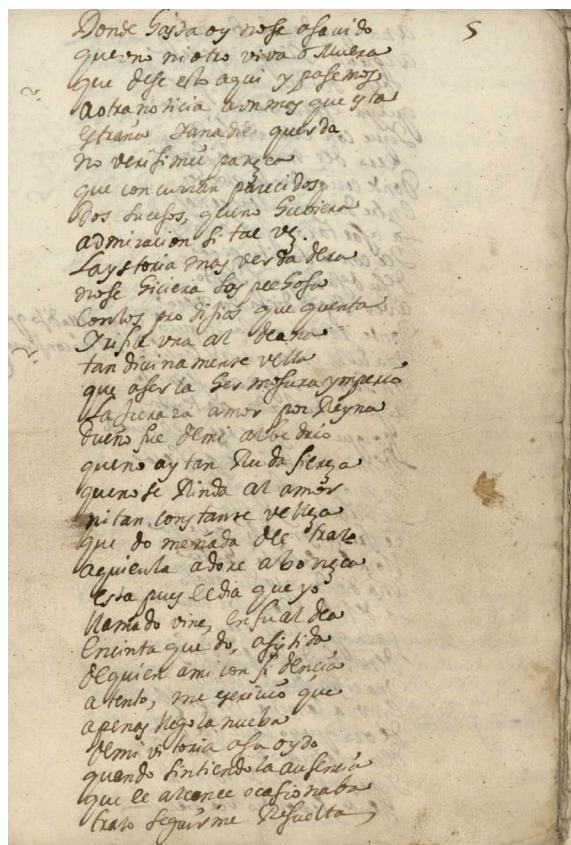 5
Donde hasta oy no se a savido
que no ni otro viva o Muera
que dese esto aqui y pasemos
a otra noticia aun mas que esta
estraña y a nadie querda
no verisimil paresca
que concurran parecidos
dos sucesos, que no hubiera
admiracion si tal vez
la ystoria mas verdadera
no se hiciera sospechosa
con los prodijios que quenta
Yrifile una aldeana
tan divinamente vella
que a ser la hermosura ymperio
la jurara amor por Reyna
dueño fue de mi albedrio
que no ay tan Ruda fiereza
que no se Rinda al amor
ni tan constante velleza
que domeñada del trato
a quien la adore aborezca
esta pues el dia que yo
llamado vine, en su aldea
en cinta quedo, asistida
de quien a mi confidencia
atento, me escrivio que
apenas llego la nueba
de mi vitoria a su oydo
quando sintiendo la ausencia
que el alcance ocasionaba
trato seguirme Resuelta